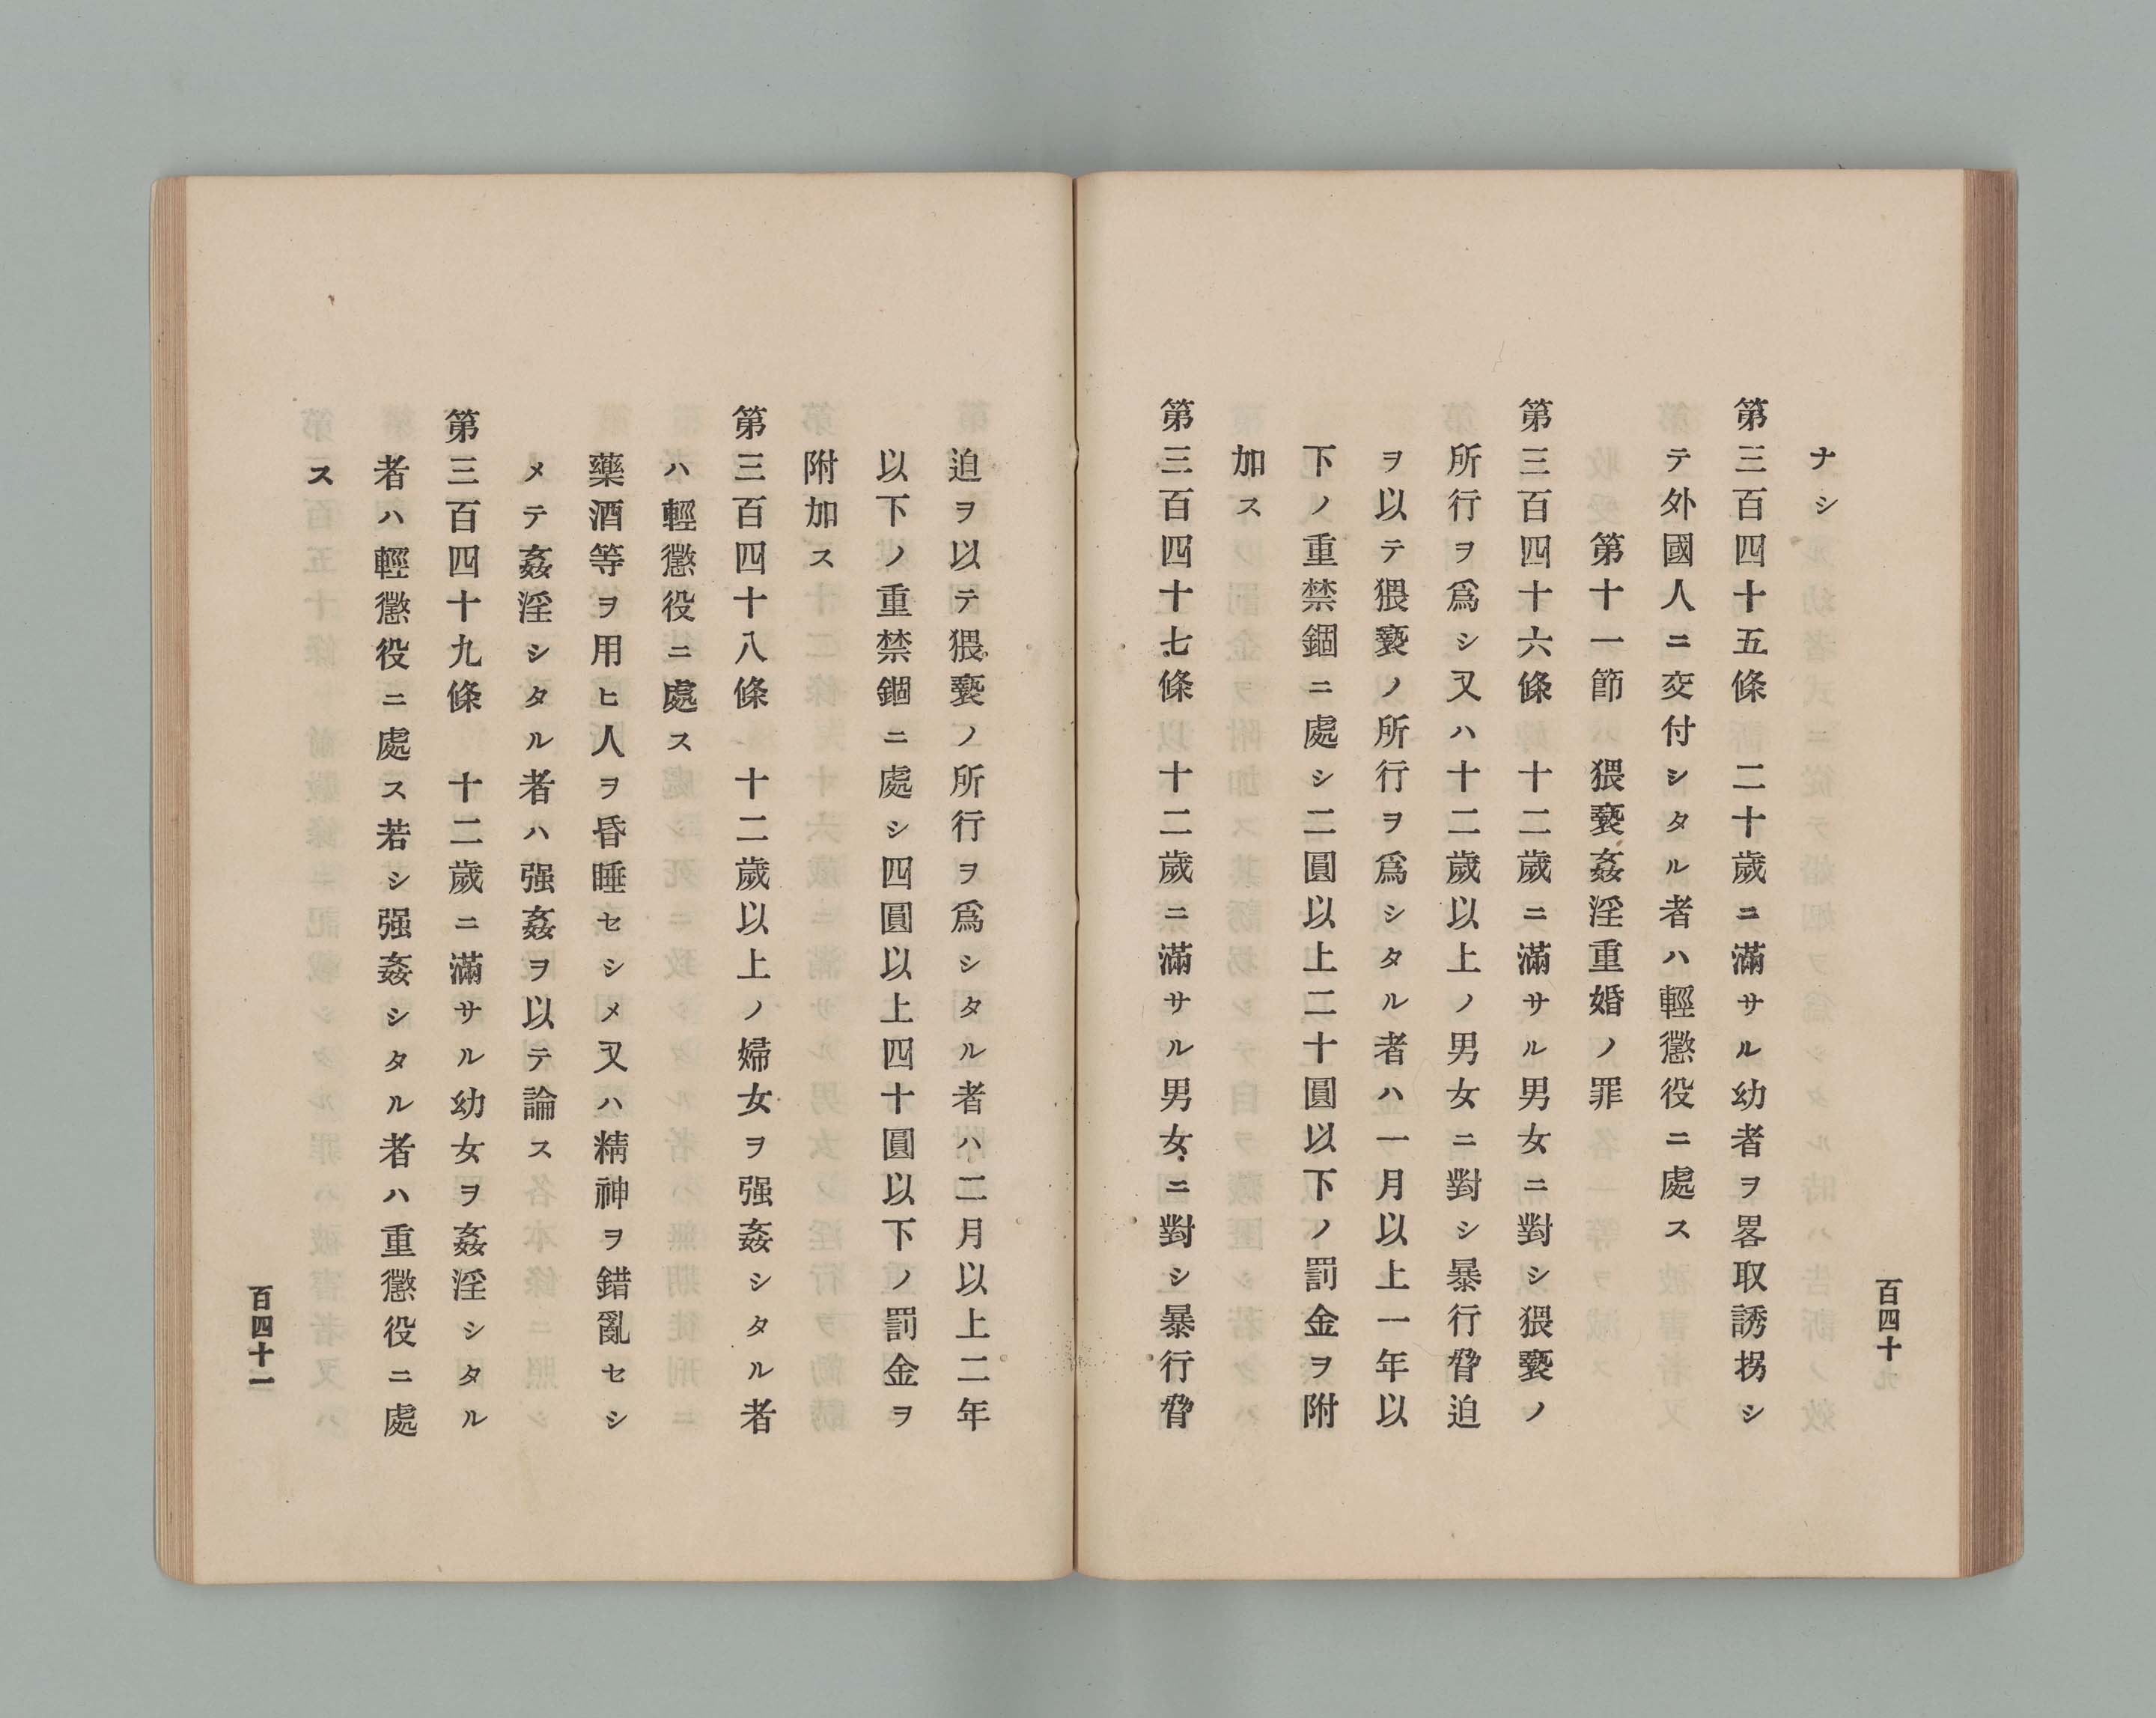 ナシ
第三百四十五條 二十歲ニ滿サル幼者ヲ畧取誘拐シ
テ外國人ニ交付シタル者ハ輕懲役ニ處ス
第十一節 猥褻姦淫重婚ノ罪
第三百四十六條 十二歲ニ滿サル男女ニ對シ猥褻ノ
所行ヲ爲シ又ハ十二歲以上ノ男女ニ對シ暴行脅迫
ヲ以テ猥褻ノ所行ヲ爲シタル者ハ一月以上一年以
下ノ重禁錮ニ處シ二圓以上二十圓以下ノ罰金ヲ附
加ス
第三百四十七條 十二歲ニ滿サル男女ニ對シ暴行脅
百四十
迫ヲ以テ猥褻ノ所行ヲ爲シタル者ハ二月以上二年
以下ノ重禁錮ニ處シ四圓以上四十圓以下ノ罰金ヲ
附加ス
第三百四十八條 十二歲以上ノ婦女ヲ强姦シタル者
ハ輕懲役ニ處ス
藥酒等ヲ用ヒ人ヲ昏睡セシメ又ハ精神ヲ錯亂セシ
メテ姦淫シタル者ハ强姦ヲ以テ論ス
第三百四十九條 十二歲ニ滿サル幼女ヲ姦淫シタル
者ハ輕懲役ニ處ス若シ强姦シタル者ハ重懲役ニ處
ス
百四十一